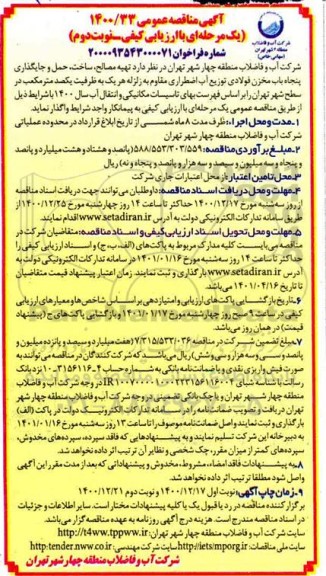 آگهی مناقصه عمومی ۱۴۰۰/۳۳
(یک مرحله‌ای با ارزیابی کیفی-نوبت دوم)
شماره فراخوان ۲۰۰۰۰۹۳۵۴۳۰۰۰۰۷۱
شرکت آب و فاضلاب
منطقه ۴ شهر تهران
(سهامی خاص)
شرکت آب و فاضلاب منطقه چهار شهر تهران در نظر دارد تهیه مصالح، ساخت، حمل و جایگذاری
پنجاه باب مخزن فولادی توزیع آب اضطراری مقاوم به زلزله هر یک به ظرفیت یکصد متر مکعب در
سطح شهر تهران را بر اساس فهرست بهای تاسیسات مکانیکی و انتقال آب سال ۱۴۰۰ با شرایط ذیل
از طریق مناقصه عمومی یک مرحله‌ای با ارزیابی کیفی به پیمانکار واجد شرایط واگذار نماید.
۱-مدت و محل اجراء: ظرف مدت ۸ ماه شمسی از تاریخ ابلاغ قرارداد در محدوده عملیاتی
شرکت آب و فاضلاب منطقه چهار شهر تهران
۲-مبلغ برآوردی مناقصه: ۵۸۸/۵۵۳/۳۰۳/۵۵۹ (پانصد و هشتاد و هشت میلیارد و پانصد
و پنجاه و سه میلیون و سیصد و سه هزار و پانصد و پنجاه و نه) ریال
۳-محل تامین اعتبار: از محل اعتبارات جاری شرکت
۴-مهلت و محل دریافت اسناد مناقصه: داوطلبان می‌توانند جهت دریافت اسناد مناقصه
از روز سه شنبه مورخ ۱۴۰۰/۱۲/۱۷ حداکثر تا ساعت ۱۴ روز چهارشنبه مورخ ۱۴۰۰/۱۲/۲۵ از
طریق سامانه تدارکات الکترونیکی دولت به آدرس www.setadiran.ir اقدام نمایند.
۵-مهلت و محل تحویل اسناد ارزیابی کیفی و اسناد مناقصه: متقاضیان شرکت در
مناقصه می‌بایست کلیه مدارک مربوط به پاکت‌های (الف، ب، ج) و اسناد ارزیابی کیفی را
حداکثر تا ساعت ۱۴ روز سه شنبه مورخ ۱۴۰۱/۰۱/۱۶ در سامانه تدارکات الکترونیکی دولت به
آدرس www.setadiran.ir بارگذاری و ثبت نمایند. زمان اعتبار پیشنهاد قیمت متقاضیان
تا تاریخ ۱۴۰۱/۰۴/۱۶ می‌باشد.
۶-تاریخ بازگشایی پاکت‌های ارزیابی و امتیازدهی بر اساس شاخص‌ها و معیارهای ارزیابی
کیفی در ساعت ۹ صبح روز چهارشنبه مورخ ۱۴۰۱/۰۱/۱۷ و بازگشایی پاکت‌های ج (پیشنهاد
قیمت) در همان روز می‌باشد.
۷-مبلغ تضمین شرکت در مناقصه ۷/۳۱۵/۵۳۳/۰۳۶ (هفت میلیارد و سیصد و پانزده میلیون و
پانصد و سی و سه هزار و سی و شش) ریال می‌باشد که شرکت کنندگان در مناقصه می‌توانند به
صورت فیش واریز نقدی و یا ضمانت‌نامه بانکی به شماره حساب
در وجه شرکت آب و فاضلاب
منطقه چهار شهر تهران و یا چک بانکی تضمینی در وجه شرکت آب و فاضلاب منطقه چهار شهر
تهران دریافت و تصویر ضمانت‌نامه را در سامانه تدارکات الکترونیک دولت در پاکت (الف)
بارگذاری و ثبت نمایند و اصل ضمانت‌نامه موصوف را تا ساعت ۱۳ روز سه شنبه مورخ ۱۴۰۱/۰۱/۱۶
به دبیرخانه این شرکت تسلیم نمایند و به پیشنهادهایی که فاقد سپرده، سپرده‌های مخدوش،
سپرده‌های کمتر از میزان مقرر، چک شخصی و نظایر آن ترتیب اثر داده نخواهد شد.
۸-به پیشنهادات فاقد امضاء، مشروط، مخدوش و پیشنهاداتی که بعد از مدت مقرر این آگهی
واصل شود مطلقا ترتیب اثر داده نخواهد شد.
۹-زمان چاپ آگهی: نوبت اول ۱۴۰۰/۱۲/۱۷ و نوبت دوم ۱۴۰۰/۱۲/۲۱
برگزار کننده مناقصه در رد یا قبول یک یا کلیه پیشنهادات مختار است. سایر اطلاعات و جزئیات
در اسناد مناقصه مندرج است. هزینه درج آگهی روزنامه به عهده مناقصه گزار می‌باشد.
http://t4ww.tpww.ir سایت شرکت آب و فاضلاب منطقه چهار شهر تهران
سایت ملی مناقصات: http://iets/mporg.ir سایت شرکت مهندسی: http:tender.nww.co.ir
شرکت آب و فاضلاب منطقه چهار شهر تهران